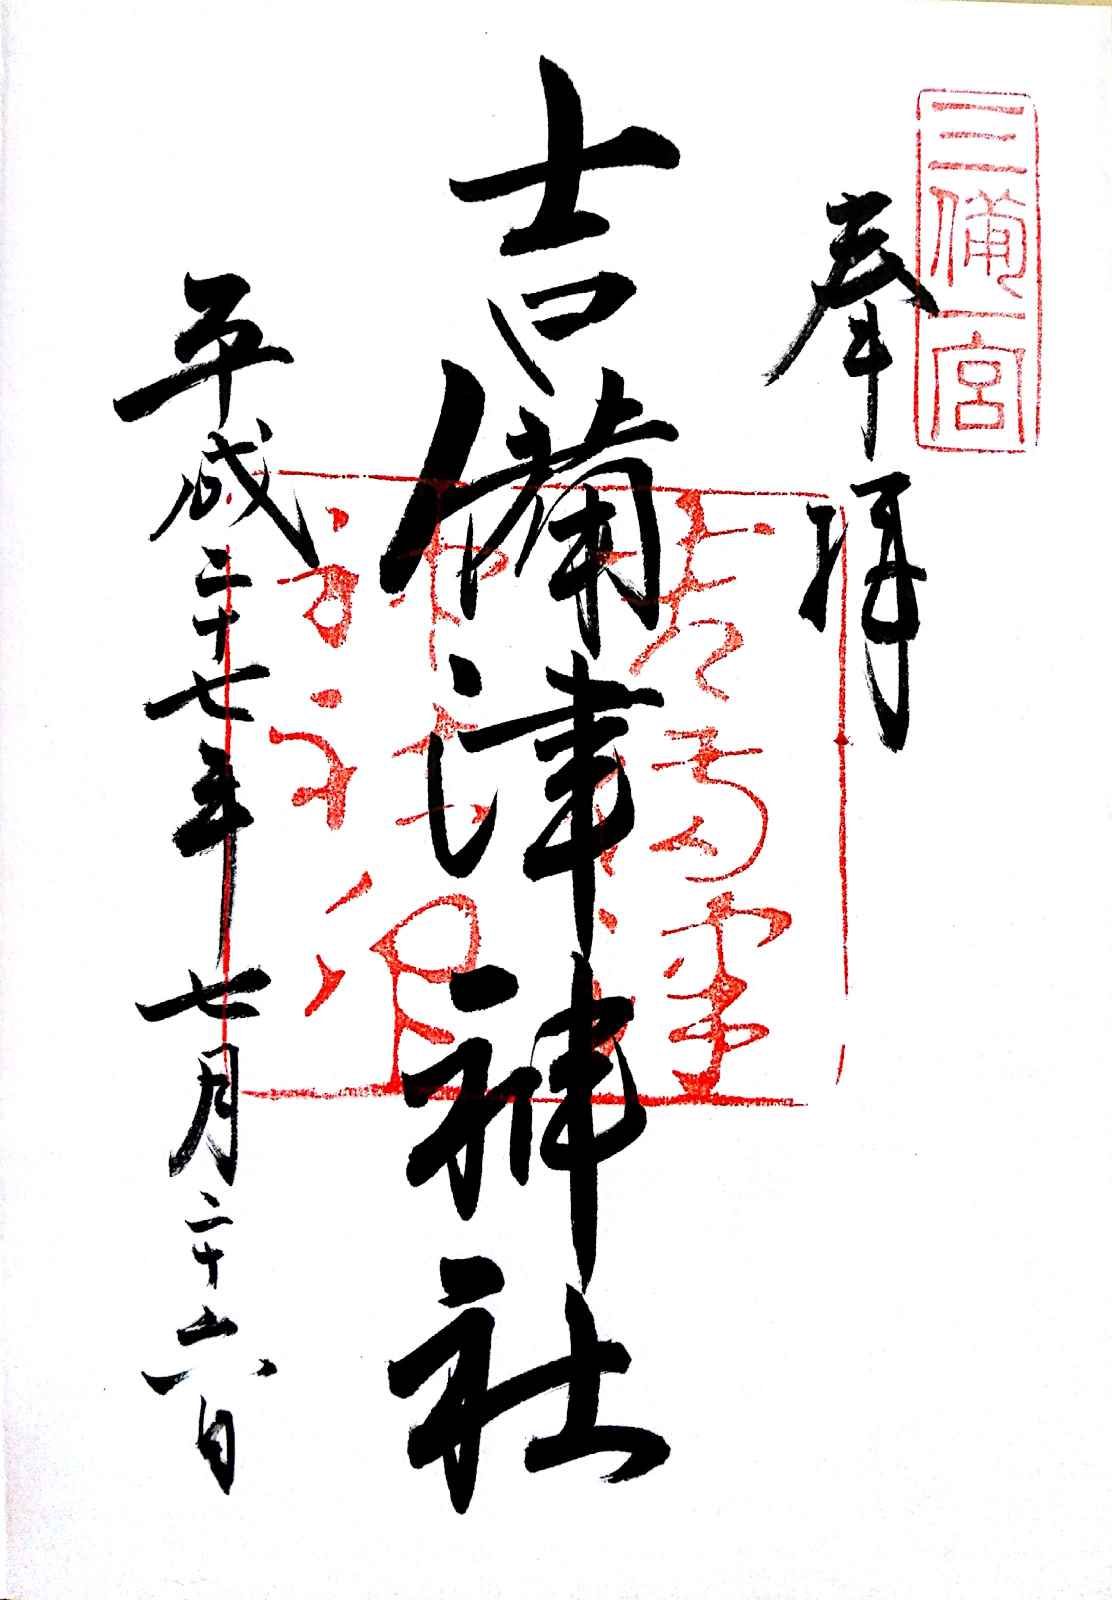 三備一宮
奉拝
吉備津神社
平成二十七年七月二十六日